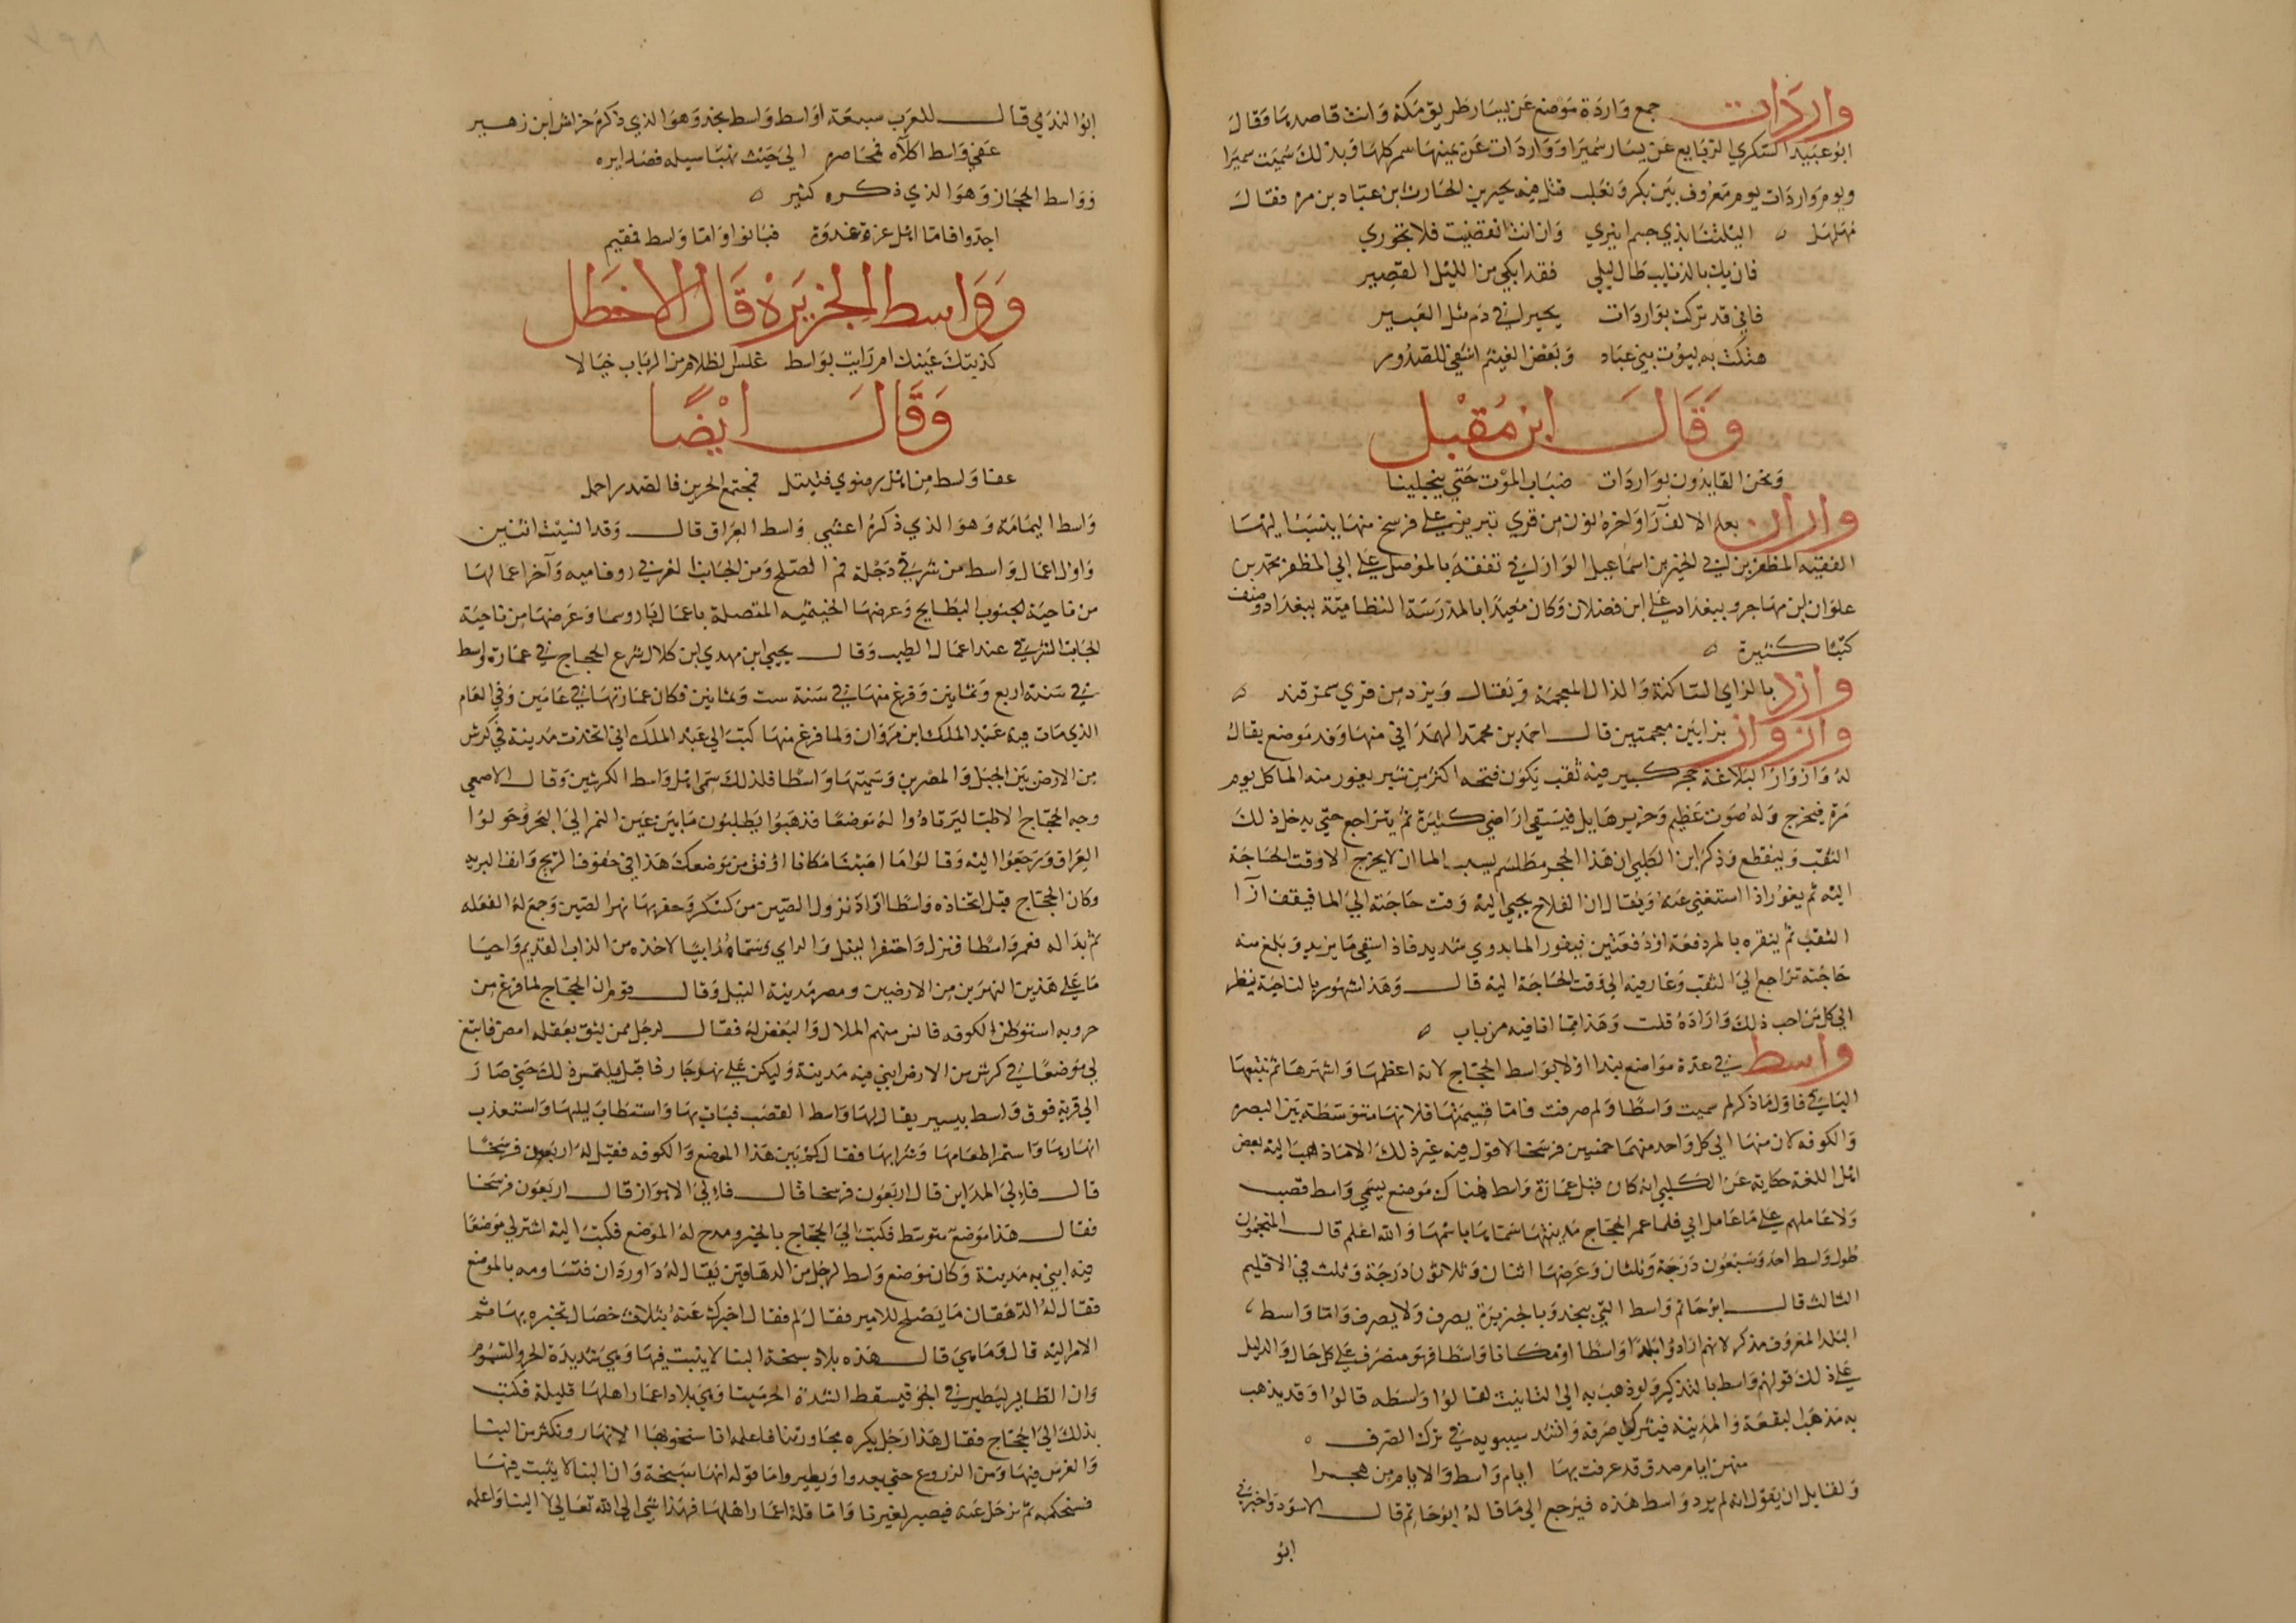 واردات جمع واردة موضع عن يسار طريق مكة وانت قاصدها وقال
ابو عبيد السكري الربايع عن يسار سميرا وواردات عن يمينها سمر كلها وبذلك سميت سميرا
ويوم واردات يوم معروف بين بكر وتغلب قتل فيه بجير بن الحارث بن عباد بن مرة فقال
مهلهل اليلتنا بذي حسم انيري وان انت انقضيت فلا تحوري
فان يك بالذنايب طال ليلي فقد ابكي من الليل القصير
فاني قد تركت بواردات بجيرا في دم مثل العبير
هتكت به بيوت بني عباد وبعض الغشم اشفي للصدور
وقال ابن مقبل
ونحن القايدون بواردات ضباب الموت حتي ينجلينا
واران بعد الالف را واخره نون من قري تبريز علي فرسخ منها ينسب اليها
الفقيه المظفر بن ابي الخير بن اسماعيل الواراني تفقه بالموصل علي ابي المظفر محمد بن
علوان بن مهاجر وببغداد علي ابن فضلان وكان معيدا بالمدرسة النظامية ببغداد وصنف
كتبا كثيرة
وازد بالزاي الساكنة والذال المعجمة ويقال ويزد من قري سمرقند
وازواز بزايين معجمتين قال احمد بن محمد الهمذاني منها وفد موضع يقال
له وازواز البلاغة حجر كبير فيه ثقب يكون فتحه اكثر من شبر يغور منه الما كل يوم
مرة فيخرج وله صوت عظيم وخرير هايل فيسقي اراضي كثيرة ثم يتراجع حتي يدخل ذلك
الثقب وينقطع وذكر ابن الكلبي ان هذا الحجر مطلسم بسبب الما ان لا يخرج الا وقت الحاجة
اليه ثم يغور اذا استغني عنه ويقال ان الفلاح يجيي اليه وقت حاجته الي الما فيقف ازا
الثقب ثم ينقره بالمر دفعة او دفعتين فيفور الما بدوي شديد فاذا استقي ما يريد وبلغ منه
حاجته تراجع الي الثقب وغار فيه الي وقت الحاجة اليه قال وهذا مشهور بالناحية ينظر
الي كل من احب ذلك واراده قلت وهذا مما انا فيه مرتاب
واسط في عدة مواضع نبدا اولا بواسط الحجاج لانه اعظمها واشهرها ثم نتبعها
الباقي فاول ما ذكر لم سميت واسطا ولم صرفت فاما تسميتها فلانها متوسطة بين البصره
والكوفه لان منها الي كل واحد منهما خمسين فرسخا لا قول فيه غير ذلك الا ما ذهب اليه بعض
اهل اللغة حكاية عن الكلبي انه كان قبل عمارة واسط هناك موضع يسمي واسط قصب
ولا عاملهم علي ما عامل ابي فلما عمر الحجاج مدينتها سماها باسمها والله اعلم قال المنجمون
طول واسط احد وسبعون درجة وثلثان وعرضها اثنان وثلاثون درجة وثلث في الاقليم
الثالث قال ابو حاتم واسط التي بنجد وبالجزيرة يصرف ولا يصرف واما واسط
البلد المعروف مذكر لانهم ارادوا بلدا واسطا او مكانا واسطا فهو منصرف علي كل حال والدليل
علي ذلك قولهم واسط بالتذكير ولو ذهب به الي التانيث لقالوا واسطه قالوا وقد يذهب
به مذهب البقعة والمدينة فيترك صرفة وانشد سيبويه في ترك الصرف
منهن ايام صدق قد عرفت بها ايام واسط والايام من هجرا
ولقايل ان يقول انه لم يرد واسط هذه فيرجع الي ما قاله ابو حاتم قال الاسود واخبرني
ابو
ابو الندي قال للعرب سبعة اواسط واسط نجد وهو الذي ذكره خراش ابن زهير
عفي واسط اكلاه فمحاضره الي حيث نهبا سيله فصدايره
وواسط الحجاز وهو الذي ذكره كثير
اجدوا فاما اهل عزة غدوة فبانوا واما واسط فمقيم
وواسط الجزيرة قال الاخطل
كذبتك عينك ام رايت بواسط غلس الظلام من الرباب خيالا
وقال ايضا
عفا واسط من اهل رضوي فنبتل فمجتمع الحرين فالصبر اجمل
واسط اليمامة وهو الذي ذكره اعشي واسط العراق قال وقد نسيت اثنين
واول اعمال واسط من شرقي دجلة فم الصلح ومن الجانب الغربي زوفاميه وآخر اعمالها
من ناحية الجنوب البطايح وعرضها الخيثميه المتصلة باعمال باروسما وعرضها من ناحية
الجانب الشرقي عند اعمال الطيب وقال يحيي ابن مهدي ابن كلال شرع الحجاج في عمارة واسط
في سنة اربع وثمانين وفرغ منها في سنة ست وثمانين فكان عمارتها في عامين وفي العام
الذي مات فيه عبد الملك ابن مروان ولما فرغ منها كتب الي عبد الملك اني اتخذت مدينة في كرش
من الارض بين الجبل والمصرين وسميتها واسطا فلذلك سمي اهل واسط الكرشين وقال الاصمعي
وجه الحجاج الاطبا ليرتادوا له موضعا فذهبوا يطلبون ما بين عين التمر الي البحر وجولوا
العراق ورجعوا اليه وقالوا ما اصبنا مكانا اوفق من موضعك هذا في خفوف الريح وانف البريه
وكان الحجاج قبل اتخاذه واسطا اراد نزول الصين من كسكر وحفر بها نهر الصين وجمع له الفعله
ثم بدا له فعمر واسطا فنزل واحتفر النيل والزاي وسماه زابيا لاخذه من الزاب القديم واحيا
ما علي هذين النهرين من الارضين ومصر مدينة النيل وقال قوم ان الحجاج لما فرغ من
حروبه استوطن الكوفه فانس منهم الملال والبغض له فقال لرجل ممن يثق بعقله امض فابتغ
لي موضعا في كرش من الارض ابني فيه مدينة وليكن علي نهر جار فاقبل يلتمس ذلك حتي صار
الي قرية فوق واسط بيسير يقال لها واسط القصب فبات بها واستطاب ليلها واستعذب
انهارها واستمرا طعامها وشرابها فقال كم بين هذا الموضع والكوفه فقيل له اربعون فرسخا
قال فالي المداين قال اربعون فرسخا قال فالي الاهواز قال اربعون فرسخا
فقال هذا موضع متوسط فكتب الي الحجاج بالخبر ومدح له الموضع فكتب اليه اشتر لي موضعا
فيه ابني به مدينة وكان موضع واسط لرجل من الدهاقين يقال له داوردان فتساومه بالموضع
فقال له الدهقان ما يصلح للامير فقال لم فقال اخبرك عنه بثلاث خصال تخبره بها ثم
الامر اليه قال وما هي قال هذه بلاد سبخة البنا لا يثبت فيها وهي شديدة الحر والسموم
وان الطاير ليطير في الجو فيسقط لشدة الحر ميتا وهي بلاد اعمار اهلها قليلة فكتب
بذلك الي الحجاج فقال هذا رجل يكره مجاورتنا فاعلمه انا سنحفر بها الانهار ونكثر من البنا
والغرس فيها ومن الزروع حتي يعدوا ويطيروا ما قوله انها سبخة وان البنا لا يثبت فيها
فسنحكمه ثم نرحل عنه فيصير لغيرنا واما قلة اعمار اهلها فهذا شي الي الله تعالي لا الينا واعلمه